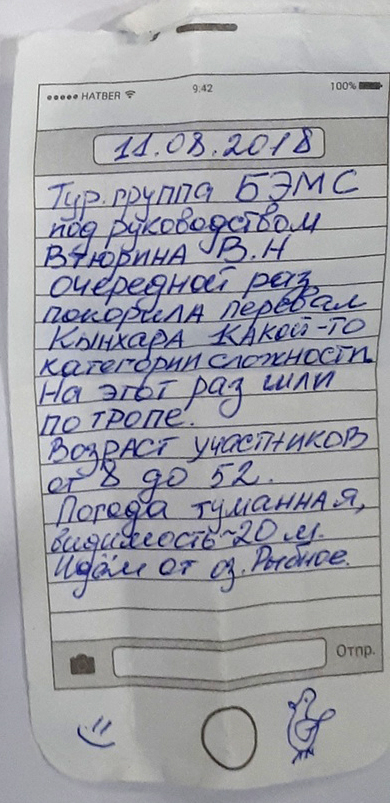 HATBER 9:42 100%
11.08.2018
Тур.группа БЭМС
под руководством
Втюрина В.Н
очередной раз
покорила перевал
Кынхара какой-то
категории сложности.
На этот раз шли
по тропе.
Возраст участников
от 8 до 52.
Погода туманная,
видимость ~20 м.
Идём от оз. Рыбное.
Отпр.